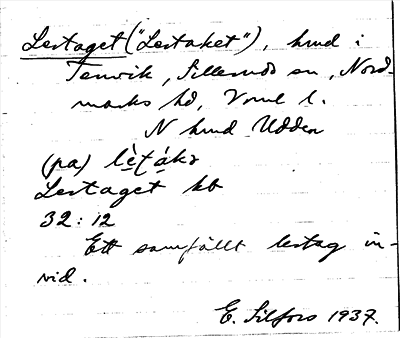 Lertaget ("Lertaket"), hmd i
Tenvik, Silleruds sn, Nord-
marks hd, Vrml l.
N hmd Udden
(pa) lè̱ṭá̱kə
Lertaget kb
32:12
Ett samfällt lertag in-
vid.
E. Silfors 1937.